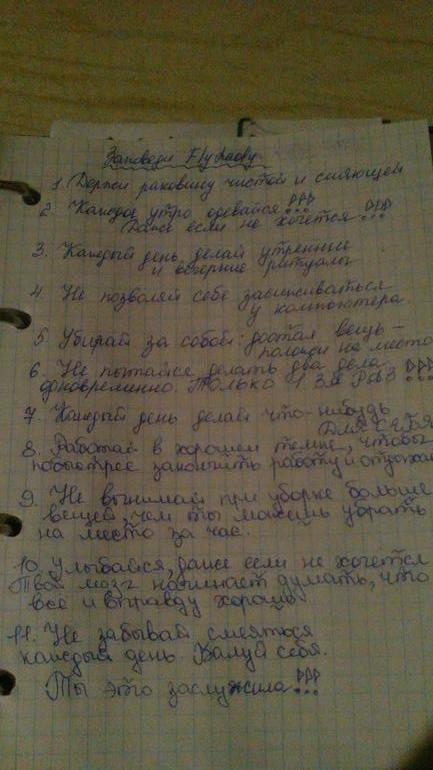 Заповеди Flylady
1. Держи раковину чистой и сияющей
2. Каждое утро одевайся!!!
Даже если не хочется!!!
3. Каждый день делай утренние
и вечерние ритуалы
4. Не позволяй себе засиживаться
у компьютера.
5. Убирай за собой: достал вещь –
положи на место
6. Не пытайся делать два дела
одновременно. Только 1 за Раз!!!
7. Каждый день делай что-нибудь
Для СЕБЯ
8. Работай в хорошем темпе, чтобы
побыстрее закончить работу и отдохн
9. Не вынимай при уборке больше
вещей, чем ты можешь убрать
на место за час.
10. Улыбайся, даже если не хочется
Твой мозг начинает думать, что
всё и вправду хорошо
11. Не забывай смеяться
каждый день. Балуй себя.
Ты это заслужила!!!